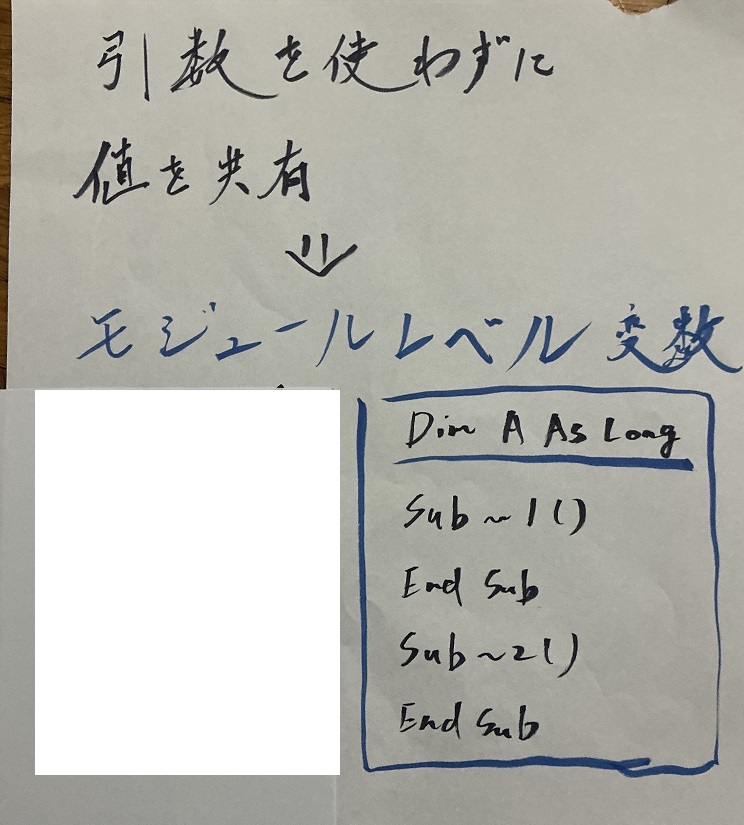 引数を使わずに
値を共有
⇓
モジュールレベル変数
Dim A As Long
Sub~1()
End Sub
Sub~2()
End Sub